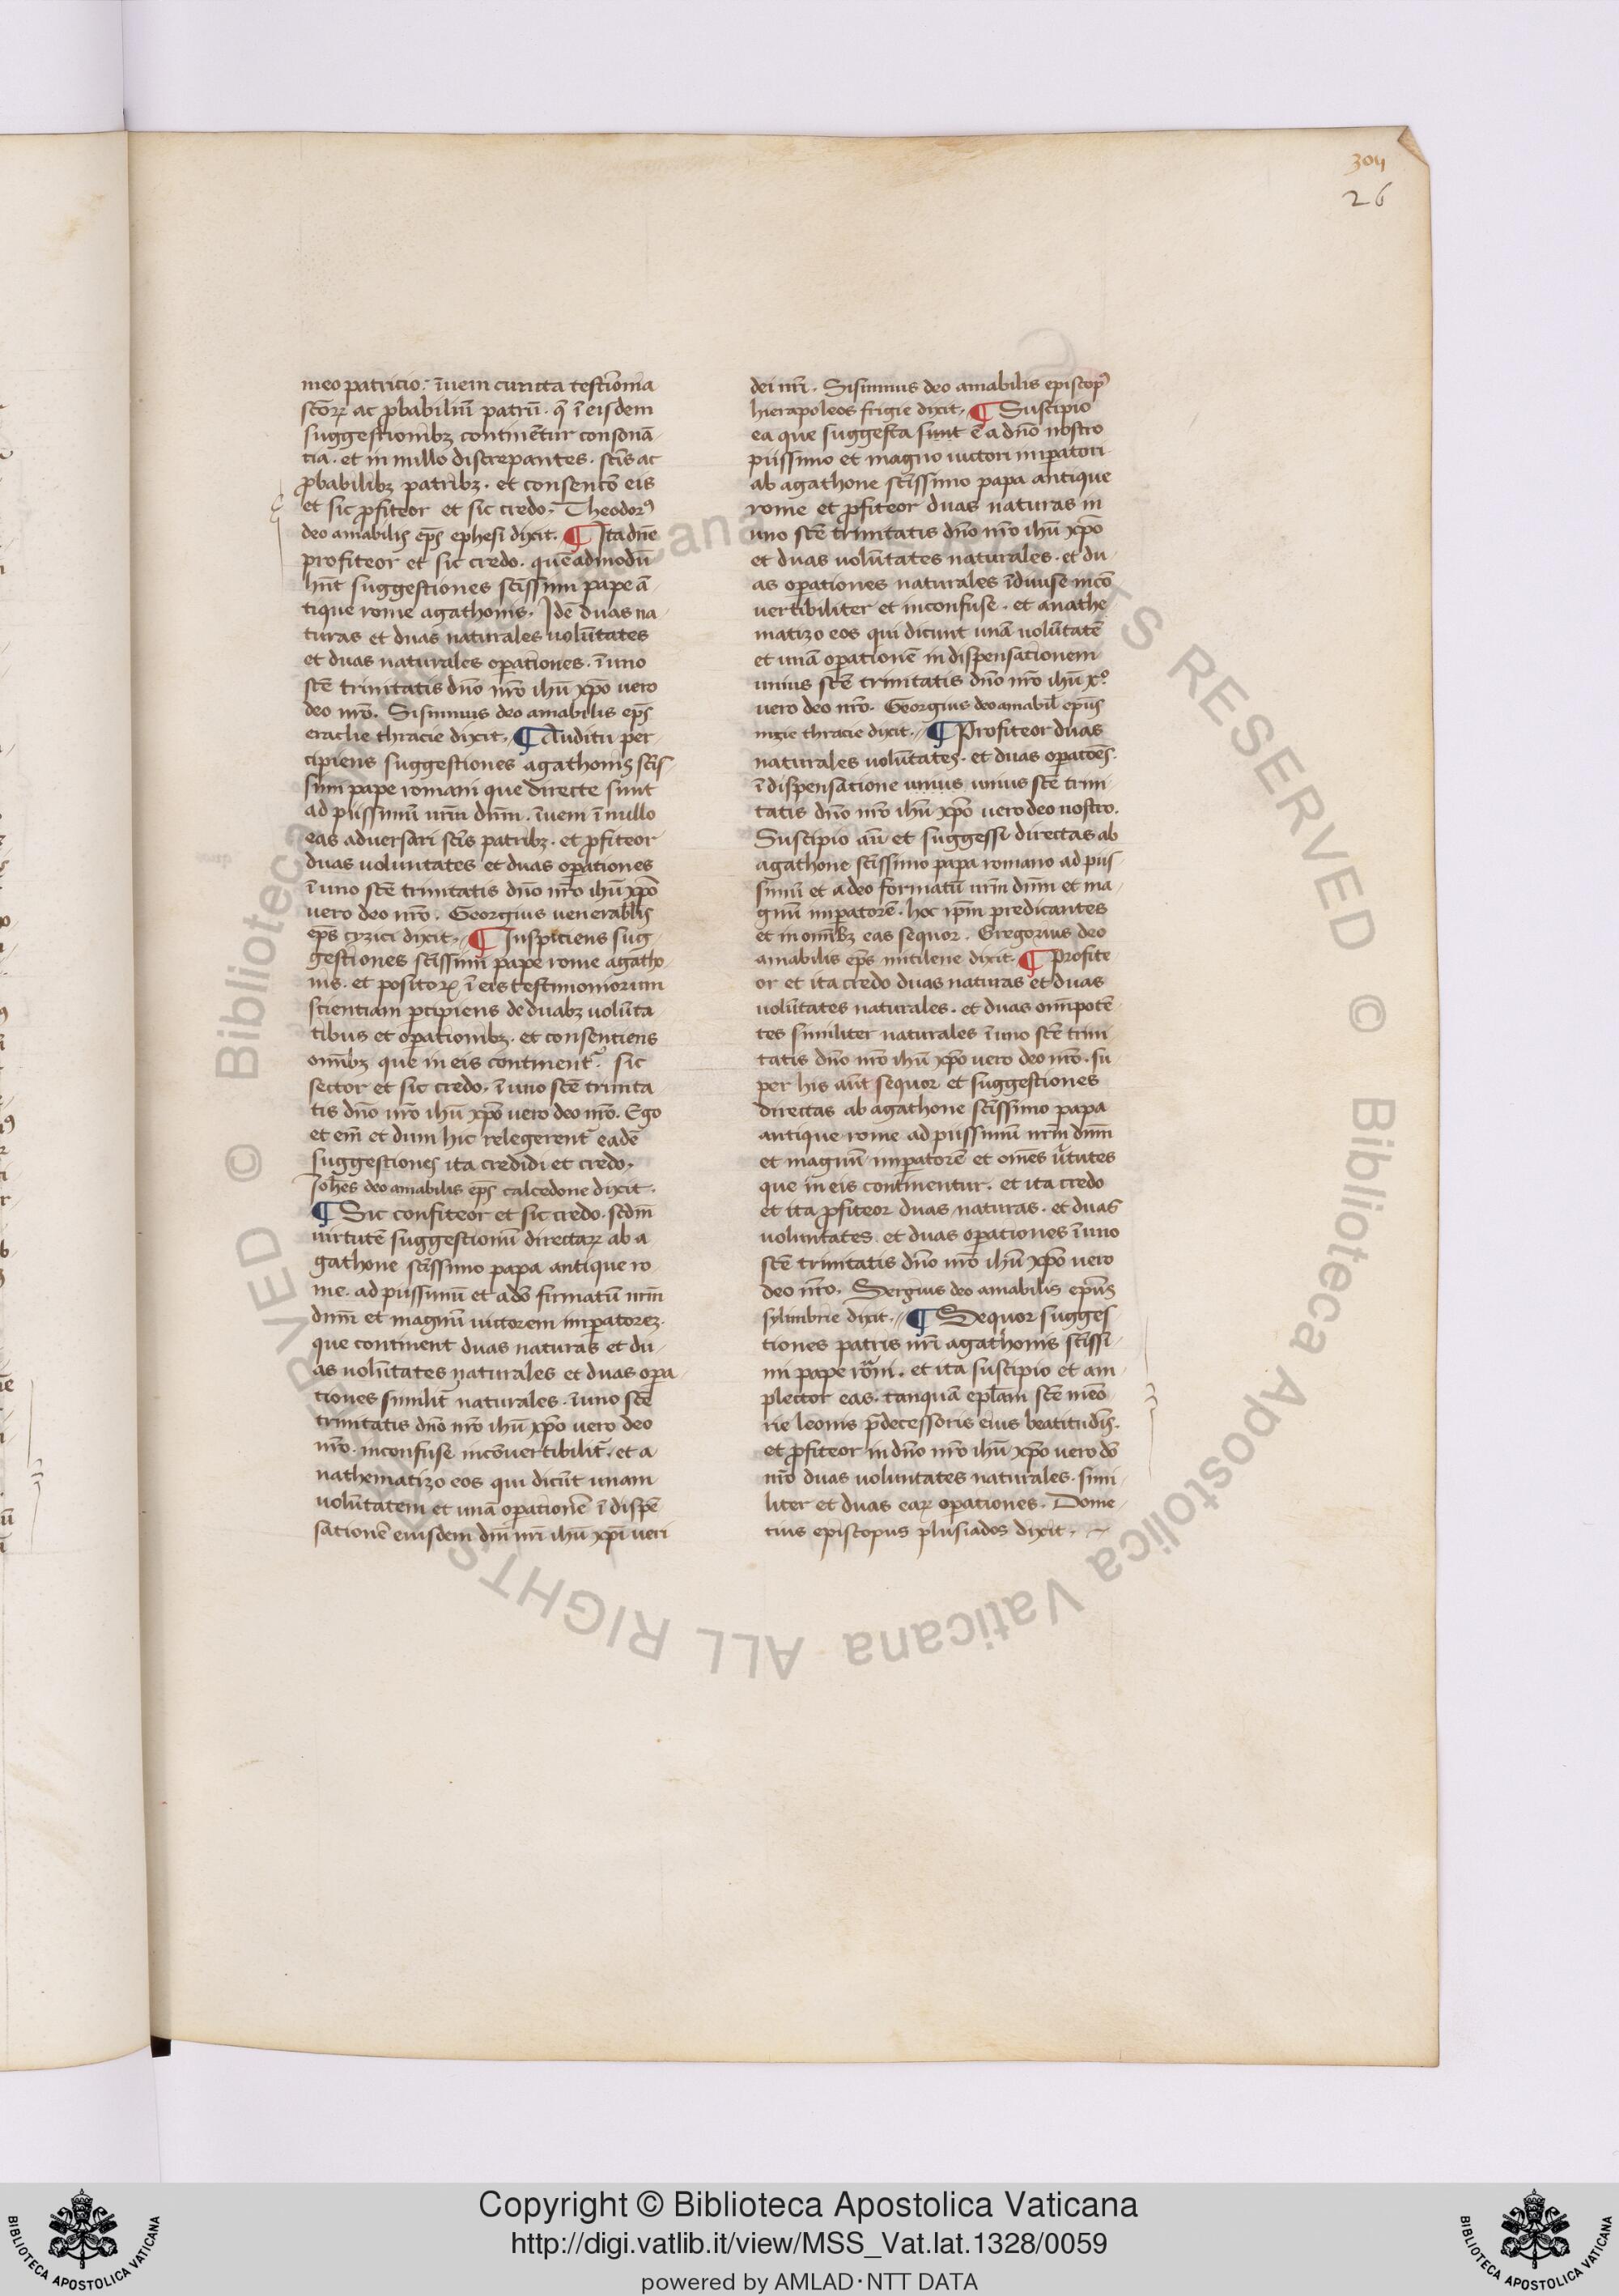 304
26
meo patricio. īueni cuncta testīonia
sctōrꝝ ac ꝓbabiliū patrū. q̄ ī eisdem
suggestionibꝫ continētur consonā-
tia. et in nullo discrepantes. sctīs ac
ꝓbabilibꝫ patribꝫ. et consentio eis
et sic ꝓfiteor et sic credo. Theodorꝰ
deo amabilis ep̄s ephesi dixit. ¶ Ita dn̄e
profiteor et sic credo. quēadmodū
hn̄t suggestiones sctīssimi pape ā
tique rome agathonis. Idē duas na-
turas et duas naturales volūtates
et duas naturales oꝑationes. ī uno
sctē trinitatis dn̄o nr̄o ihū xp̄o vero
deo nr̄o. Sisinnius deo amabilis ep̄s
eraclie thracie dixit. ¶ Auditu per-
cipiens suggestiones agathonis sctīs-
simi pape romani que directe sunt
ad piissimū nr̄m dn̄m. īueni ī nullo
eas adversari sctīs patribꝫ. et ꝓfiteor
duas voluntates et duas oꝑationes
ī uno sctē trinitatis dn̄o nr̄o ihū xp̄o
vero deo nr̄o. Georgius venerabilis
ep̄s cyzici dixit. ¶ Inspiciens sug-
gestiones sctīssimi pape rome agatho-
nis. et positorꝝ ī eis testimoniorum
scientiam ꝑcipiens de duabꝫ volūta-
tibus et oꝑationibꝫ. et consentiens
omībꝫ que in eis continent᷑. sic
sector et sic credo. ī uno sctē trinita-
tis dn̄o nr̄o ihū xp̄o vero deo nr̄o. Ego
et em̄ et dum hic relegerent᷑ eadē
suggestiones ita credidi et credo.
Ioh̄es deo amabilis ep̄s calcedone dixit.
¶ Sic confiteor et sic credo. scdm̄
virtutē suggestionū directarꝝ ab a
gathone sctīssimo papa antique ro-
me. ad piissimū et a dō firmatū nr̄m
dn̄m et magnū victorem imꝑatorez.
que continent duas naturas et du-
as volūtates naturales et duas oꝑa-
tiones similit᷑ naturales. ī uno sctē
trinitatis dn̄o nr̄o ihū xp̄o vero deo
nr̄o. inconfuse incōvertibilit᷑. et a-
nathematizo eos qui dicūt unam
volūtatem et unā oꝑationē ī dispē
sationē eiusdem dn̄i nr̄i ihū xp̄i veri
dei nr̄i. Sisinnius deo amabilis episcopꝰ
hierapoleos frigie dixit. ¶ Suscipio
ea que suggesta sunt ē a dn̄o nostro
piissimo et magno victori imꝑatori
ab agathone sctīssimo papa antique
rome et ꝓfiteor duas naturas in
uno sctē trinitatis dn̄o nr̄o ihū xp̄o
et duas volūtates naturales. et du-
as oꝑationes naturales īdiuise incō-
vertibiliter et inconfuse. et anathe
matizo eos qui dicunt unā volūtatē
et unā oꝑationē in dispensationem
unius sctē trinitatis dn̄o nr̄o ihū x.º
vero deo nr̄o. Georgius deo amabil̄ epūs
nizie thracie dixit. ¶ Profiteor duas
naturales volūtates. et duas oꝑatōēs.
ī dispensatione unius unius sctē trini
tatis dn̄o nr̄o ihū xp̄o vero deo nostro.
Suscipio aūt et suggessi directas ab
agathone sctīssimo papa romano ad piis-
simū et a deo formatū nr̄m dn̄m et ma-
gnū imꝑatorē. hoc ip̄m predicantes
et in omībꝫ eas sequor. Gregorius deo
amabilis ep̄s mitilene dixit. ¶ Profite
or et ita credo duas naturas et duas
volūtates naturales. et duas omīpotē-
tes similiter naturales ī uno sctē trini
tatis dn̄o nr̄o ihū xp̄o vero deo nr̄o. su-
per his aūt sequor et suggestiones
directas ab agathone sctīssimo papa
antique rome ad piissimū nr̄m dn̄m
et magnū imꝑatorē et om̄es v᷑tutes
que in eis continentur. et ita credo
et ita ꝓfiteor duas naturas. et duas
voluntates. et duas oꝑationes ī uno
sctē trinitatis dn̄o nr̄o ihū xp̄o vero
deo nr̄o. Sergius deo amabilis epūs
sylimbrie dixit. ¶ Sequor sugges
tiones patris nr̄i agathonis sctīssi-
mi pape roᷓni. et ita suscipio et am-
plector eas. tanquā epl̄am sctē mēo
rie leonis p̄decessoris eius beatitudīs.
et ꝓfiteor in dn̄o nr̄o ihū xp̄o vero dō
nr̄o duas voluntates naturales. simi-
liter et duas earꝝ oꝑationes. Dome-
tius episcopus plusiados dixit.
Copyright © Biblioteca Apostolica Vaticana
http://digi.vatlib.it/view/MSS_Vat.lat.1328/0059
powered by AMLAD·NTT DATA